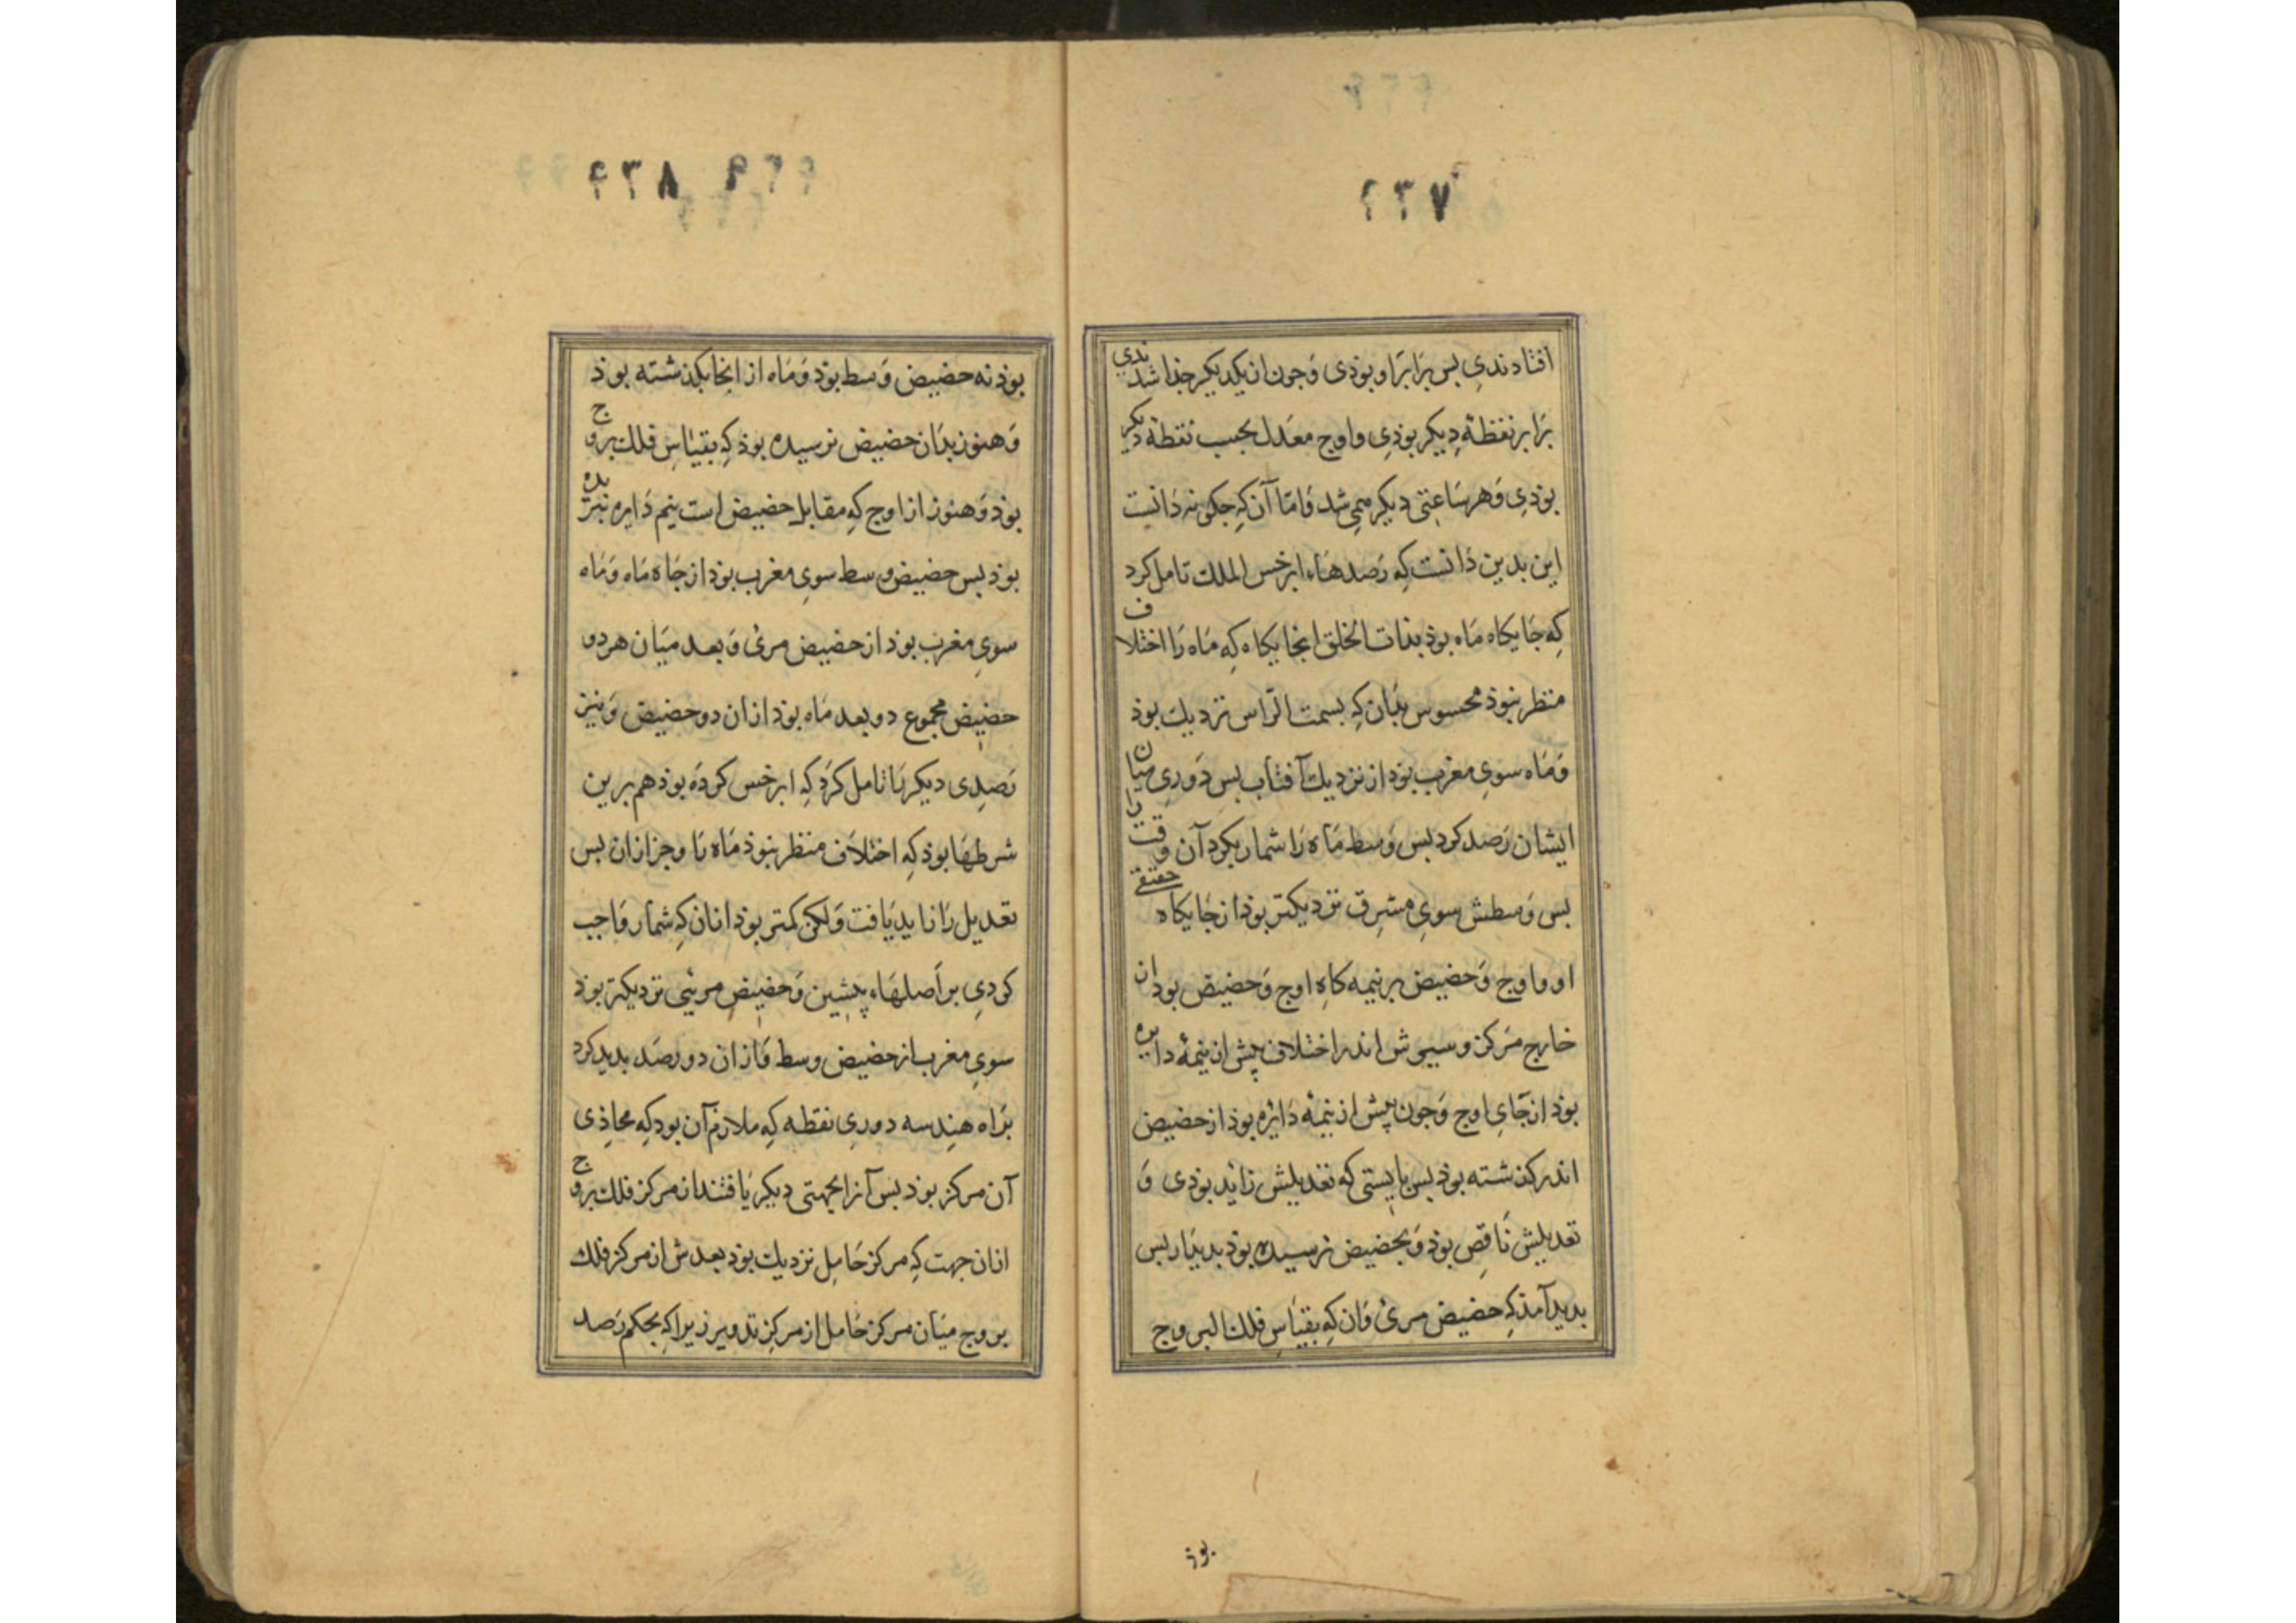 ۲۳۷
افتادندی بس برابر او بوذی وجون از یکدیکر جذا شدندی
برابر نقطهٔ دیکر بوذی و اوج معدل بحسب نقطهٔ دیکر
بوذی و هر ساعتی دیکر می شد و اما آن که جکونه دانست
این بدین دانست که رصدهاء ابرخس الملک تامل کرد
که جایکاه ماه بوذ بذات الحلق انجایکاه که ماه را اختلاف
منظر نبوذ محسوس بذان که بسمت الراس نزدیک بوذ
و ماه سوی مغرب بوذ از نزدیک آفتاب بس دوری میان
ایشان رصد کرد بس وسط ماه را شمار بکرد آن وقت را
بس وسطش سوی مشرق نزدیکتر بوذ از جایکاه حقیقی
او و اوج و حضیض بر نیمه کاه اوج و حضیض بوذ از
خارج مرکز و سیرش اندر اختلاف پیش از نیمهٔ دایره
بوذ از جای اوج و جون پیش از نیمهٔ دایره بوذ از حضیض
اندر کذشته بوذ بس بایستی که تعدیلش زاید بوذی و
تعدیلش ناقص بوذ و بحضیض نرسیده بوذ بدیدار بس
بدید آمذ که حضیض مرئ و ان که بقیاس فلک البروج
بوذ
۲۳۸
بوذ نه حضیض وسط بوذ و ماه از انجا بکذشته بوذ
و هنوز بذان حضیض نرسیده بوذ که بقیاس فلک بروج
بوذ و هنوز از اوج که مقابل حضیض است نیم دایره نبریده
بوذ بس حضیض وسط سوی مغرب بوذ از جاه ماه و ماه
سوی مغرب بوذ از حضیض مرئ و بعد میان هر دو
حضیض مجموع دو بعد ماه بوذ از ان دو حضیض و نیز
رصدی دیکر را تامل کرد که ابرخس کرده بوذ هم برین
شرطها بوذ که اختلاف منظر نبوذ ماه را و جز ازان بس
تعدیل را زاید یافت و لکن کمتر بوذ ازان که شمار واجب
کردی بر اصلهاء پیشین و حضیض مرئی نزدیکتر بوذ
سوی مغرب از حضیض وسط و ازان دو رصد بدید کرد
براه هندسه دوری نقطه که ملازم آن بود که محاذی
آن مرکز بوذ بس آنرا بجهتی دیکر یافتند از مرکز فلک بروج
ازان جهت که مرکز حامل نزدیک بوذ بعدش از مرکز فلک
بروج میان مرکز حامل از مرکز تدویر زیرا که بحکم رصد